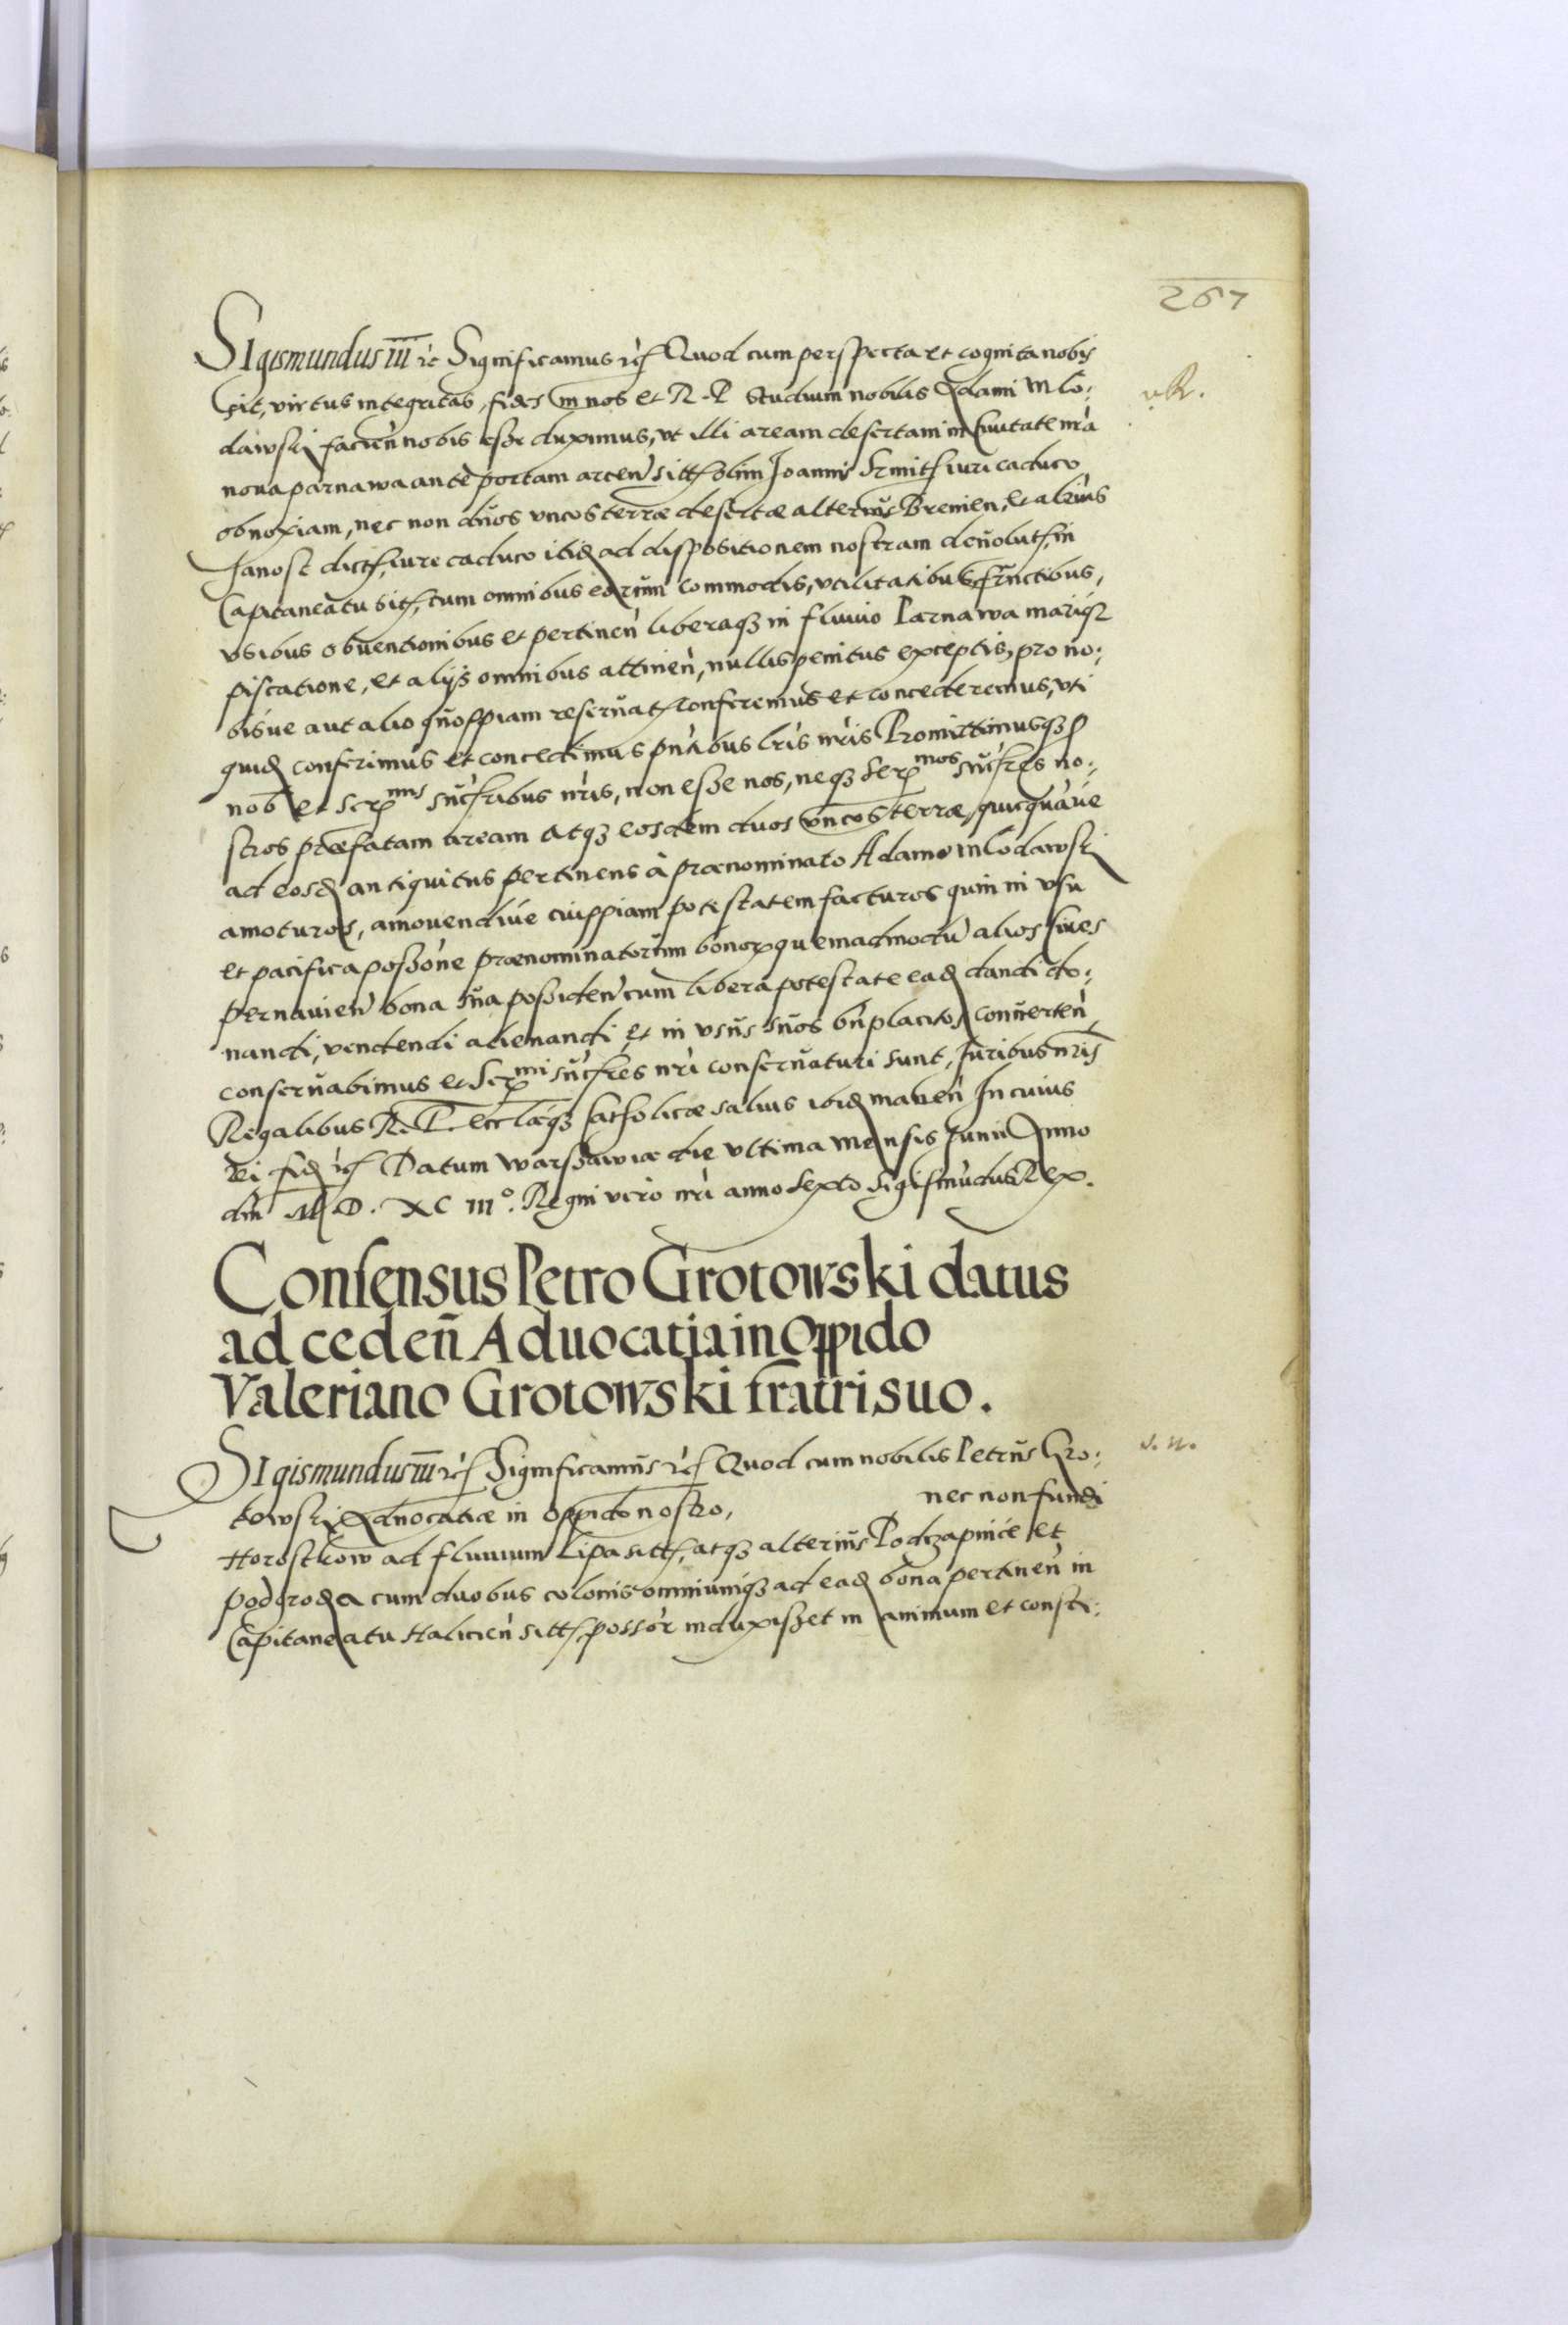 267
Sigismundus III etc Significamus etc Quod cum perspecta et cognita nobis
sit, virtus integritas, fides in nos et R. P. studium nobilis Adami Mlo:
dawski facien̄ nobis esse duximus, vt illi aream desertam in Ciuitate nr̄a
noua parnawa ante portam arcen̄ sitt̄ olim Joannis Smitt iuri caduco
obnoxiam, nec non duos vncos terræ desertæ alterius Bremen, et alterius
Janost dict, iure caduco ibid ad dispositionem nostram deuolut, in
Capitaneatu sit, cum omnibus eorum commodis, vtilitatibus fructibus,
vsibus obuentionibus et pertinen̄ liberaq3 in fluuio Parnawa mariq3
piscatione, et alijs omnibus attinen̄, nullis penitus exceptis, pro no:
bisue aut alio quoppiam reseruat̄ conferemus et concederemus, vti
quid conferimus et concedimus pn̄tibus lr̄is nr̄is Promittimusq3 p
nob et Ser^mis succ̄ribus nr̄is, non esse nos, neq3 Ser^mos succ̄res no:
stros præfatam aream atq3 eosdem duos vncos terræ, quicquāue
ad eosd antiquitus pertinens à prænominato Adamo Mlodawski
amoturos, amouendiue cuippiam potestatem facturos quin in vsu
et pacifica possōne prænominatorum bonor quemadmodū alios Ciues
pernauien̄ bona sua possiden̄ cum libera potestate ead dandi do:
nandi, vendendi alienandi, et in vsus suos bn̄placitos conuerten̄
conseruabimus et Ser^mi succ̄res nr̄i conseruaturi sunt, Juribus nr̄is
Regalibus R. P. eccl̄æq3 Catholicæ saluis ibid manen̄ In cuius
rei fid etc Datum Warssawiæ die vltima mensis Junii Anno
dn̄i M. D. XC III°. Regni vero nr̄i anno sexto Sigismūdus Rex.
v. R.
Consensus Petro Grotowski datus
ad ceden̄ Aduocatia in Oppido
Valeriano Grotowski fratri suo.
Sigismundus III etc Significamus etc Quod cum nobilis Petrus Gro:
towski Aduocatiæ in oppido nostro, nec non fundi
Horostkow ad fluuium Lipa sitt, atq3 alterius Podczapincie et
podgrodza cum duobus colonis omniumq3 ad ead bona pertinen̄ in
Capitaneatu Halicien̄ sitt, possōr induxisset in animum et consti:
s. n.